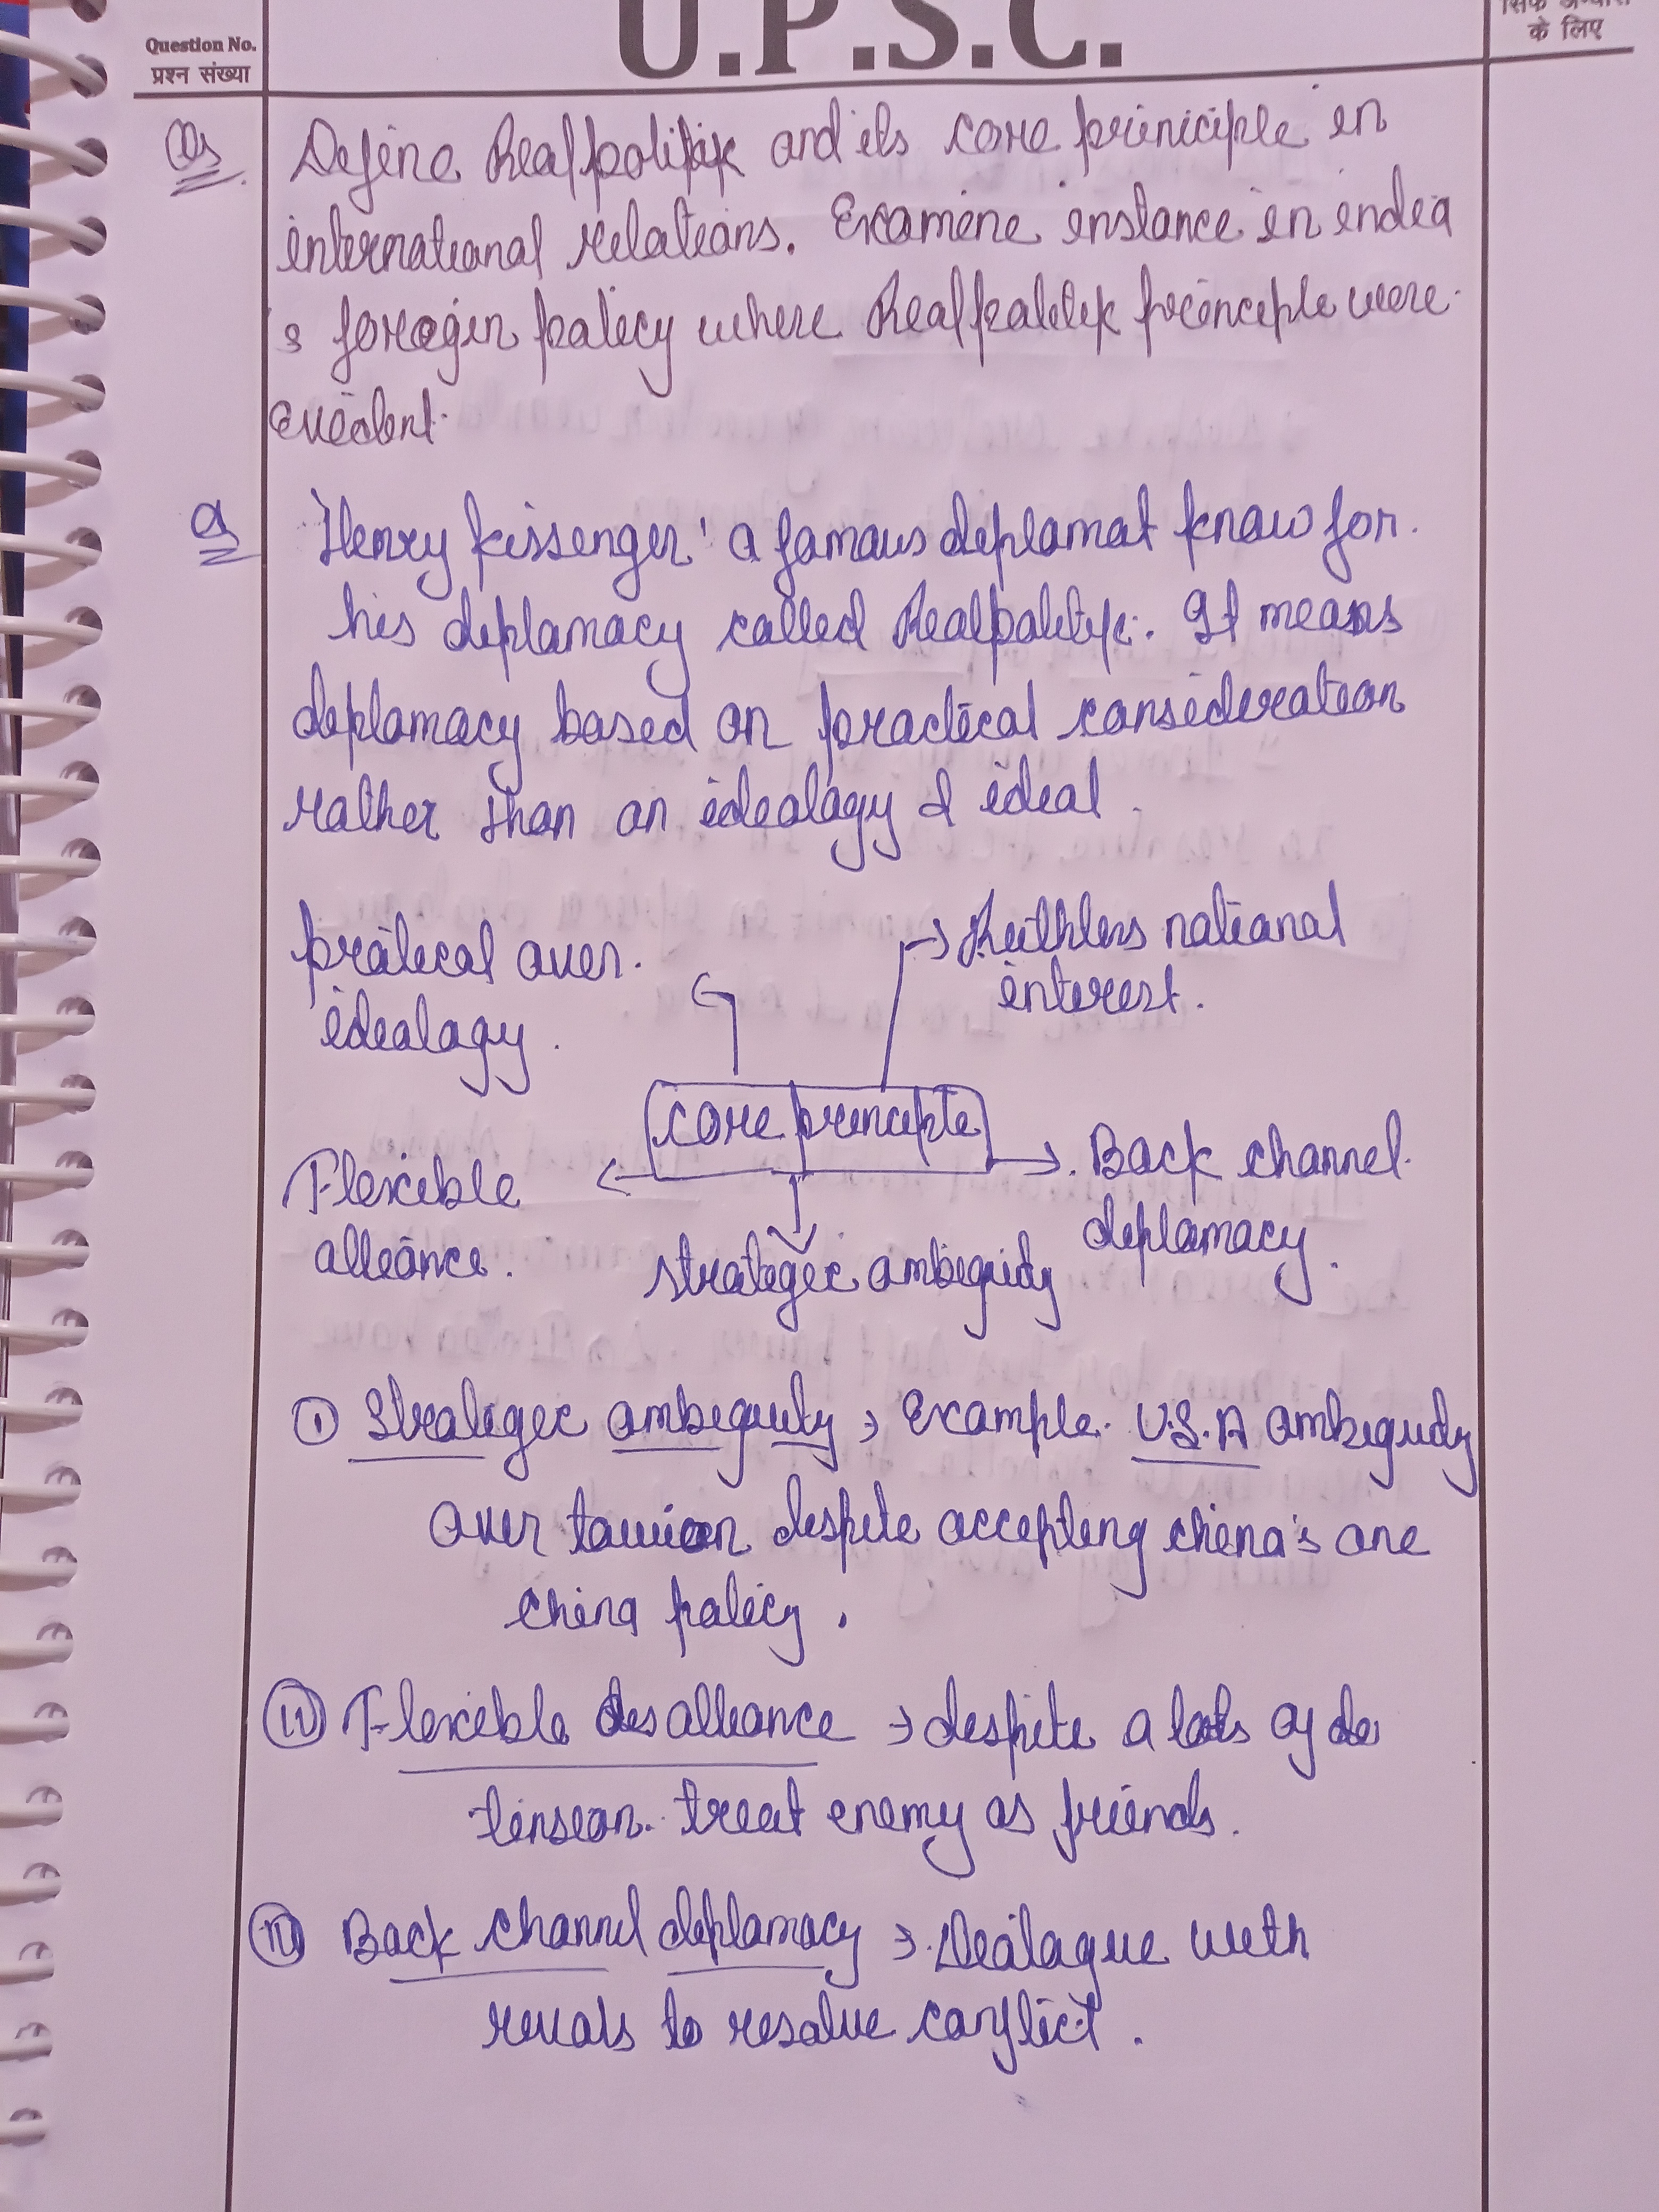 U.P.S.C.
Question No.
प्रश्न संख्या
के लिए
Qs Define Realpolitik and its core priniciple in
international relations. Examine instance in india
's foregin policy where Realpolitik principle were
evident.
Henry kissenger' a famous diplomat know for
his diplomacy called Realpolitik. It means
diplomacy based on practical consideration
rather than on idealogy & ideal.
pratical over
idealogy.
→ Ruthless national
interest.
core principle
Flexible
alliance.
Back channel
diplomacy.
strategic ambiguidy
① Strategic ambiguity → Example. U.S.A ambiguidy
over despite accepting china's one
china policy.
Flexible alliance → despite a lots of
tension. treat enemy as friends.
Back channel diplomacy → Dialague with
rivals to resolve conflict.